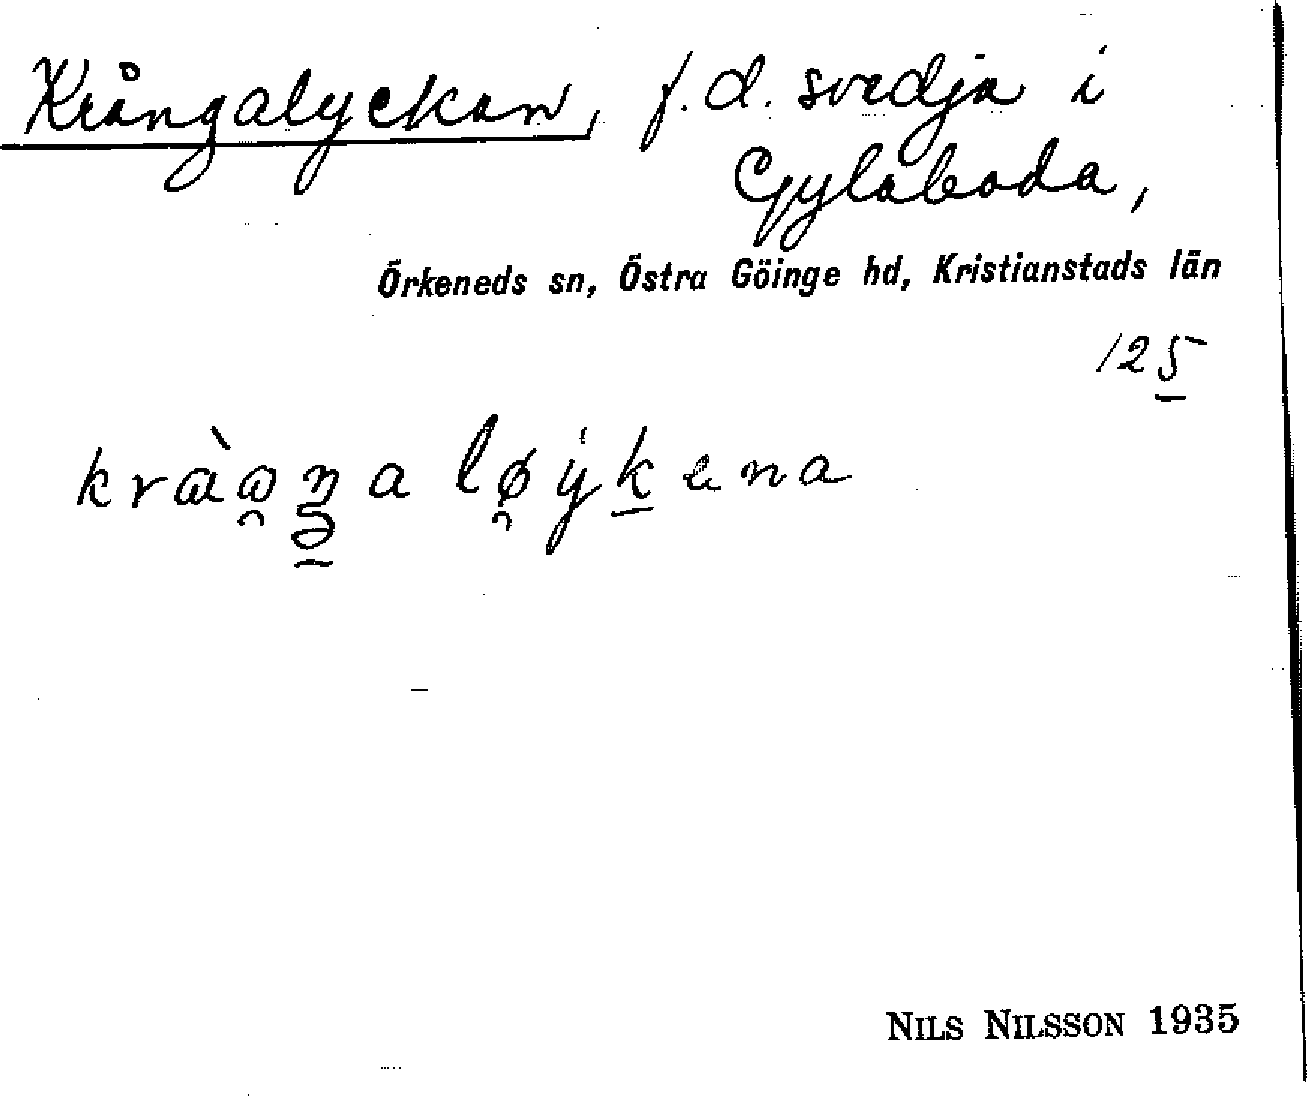 Krångalyckan, f.d. svedja i
Gylsboda,
Örkeneds sn, Östra Göinge hd, Kristianstads län
125
NILS NILSSON 1935